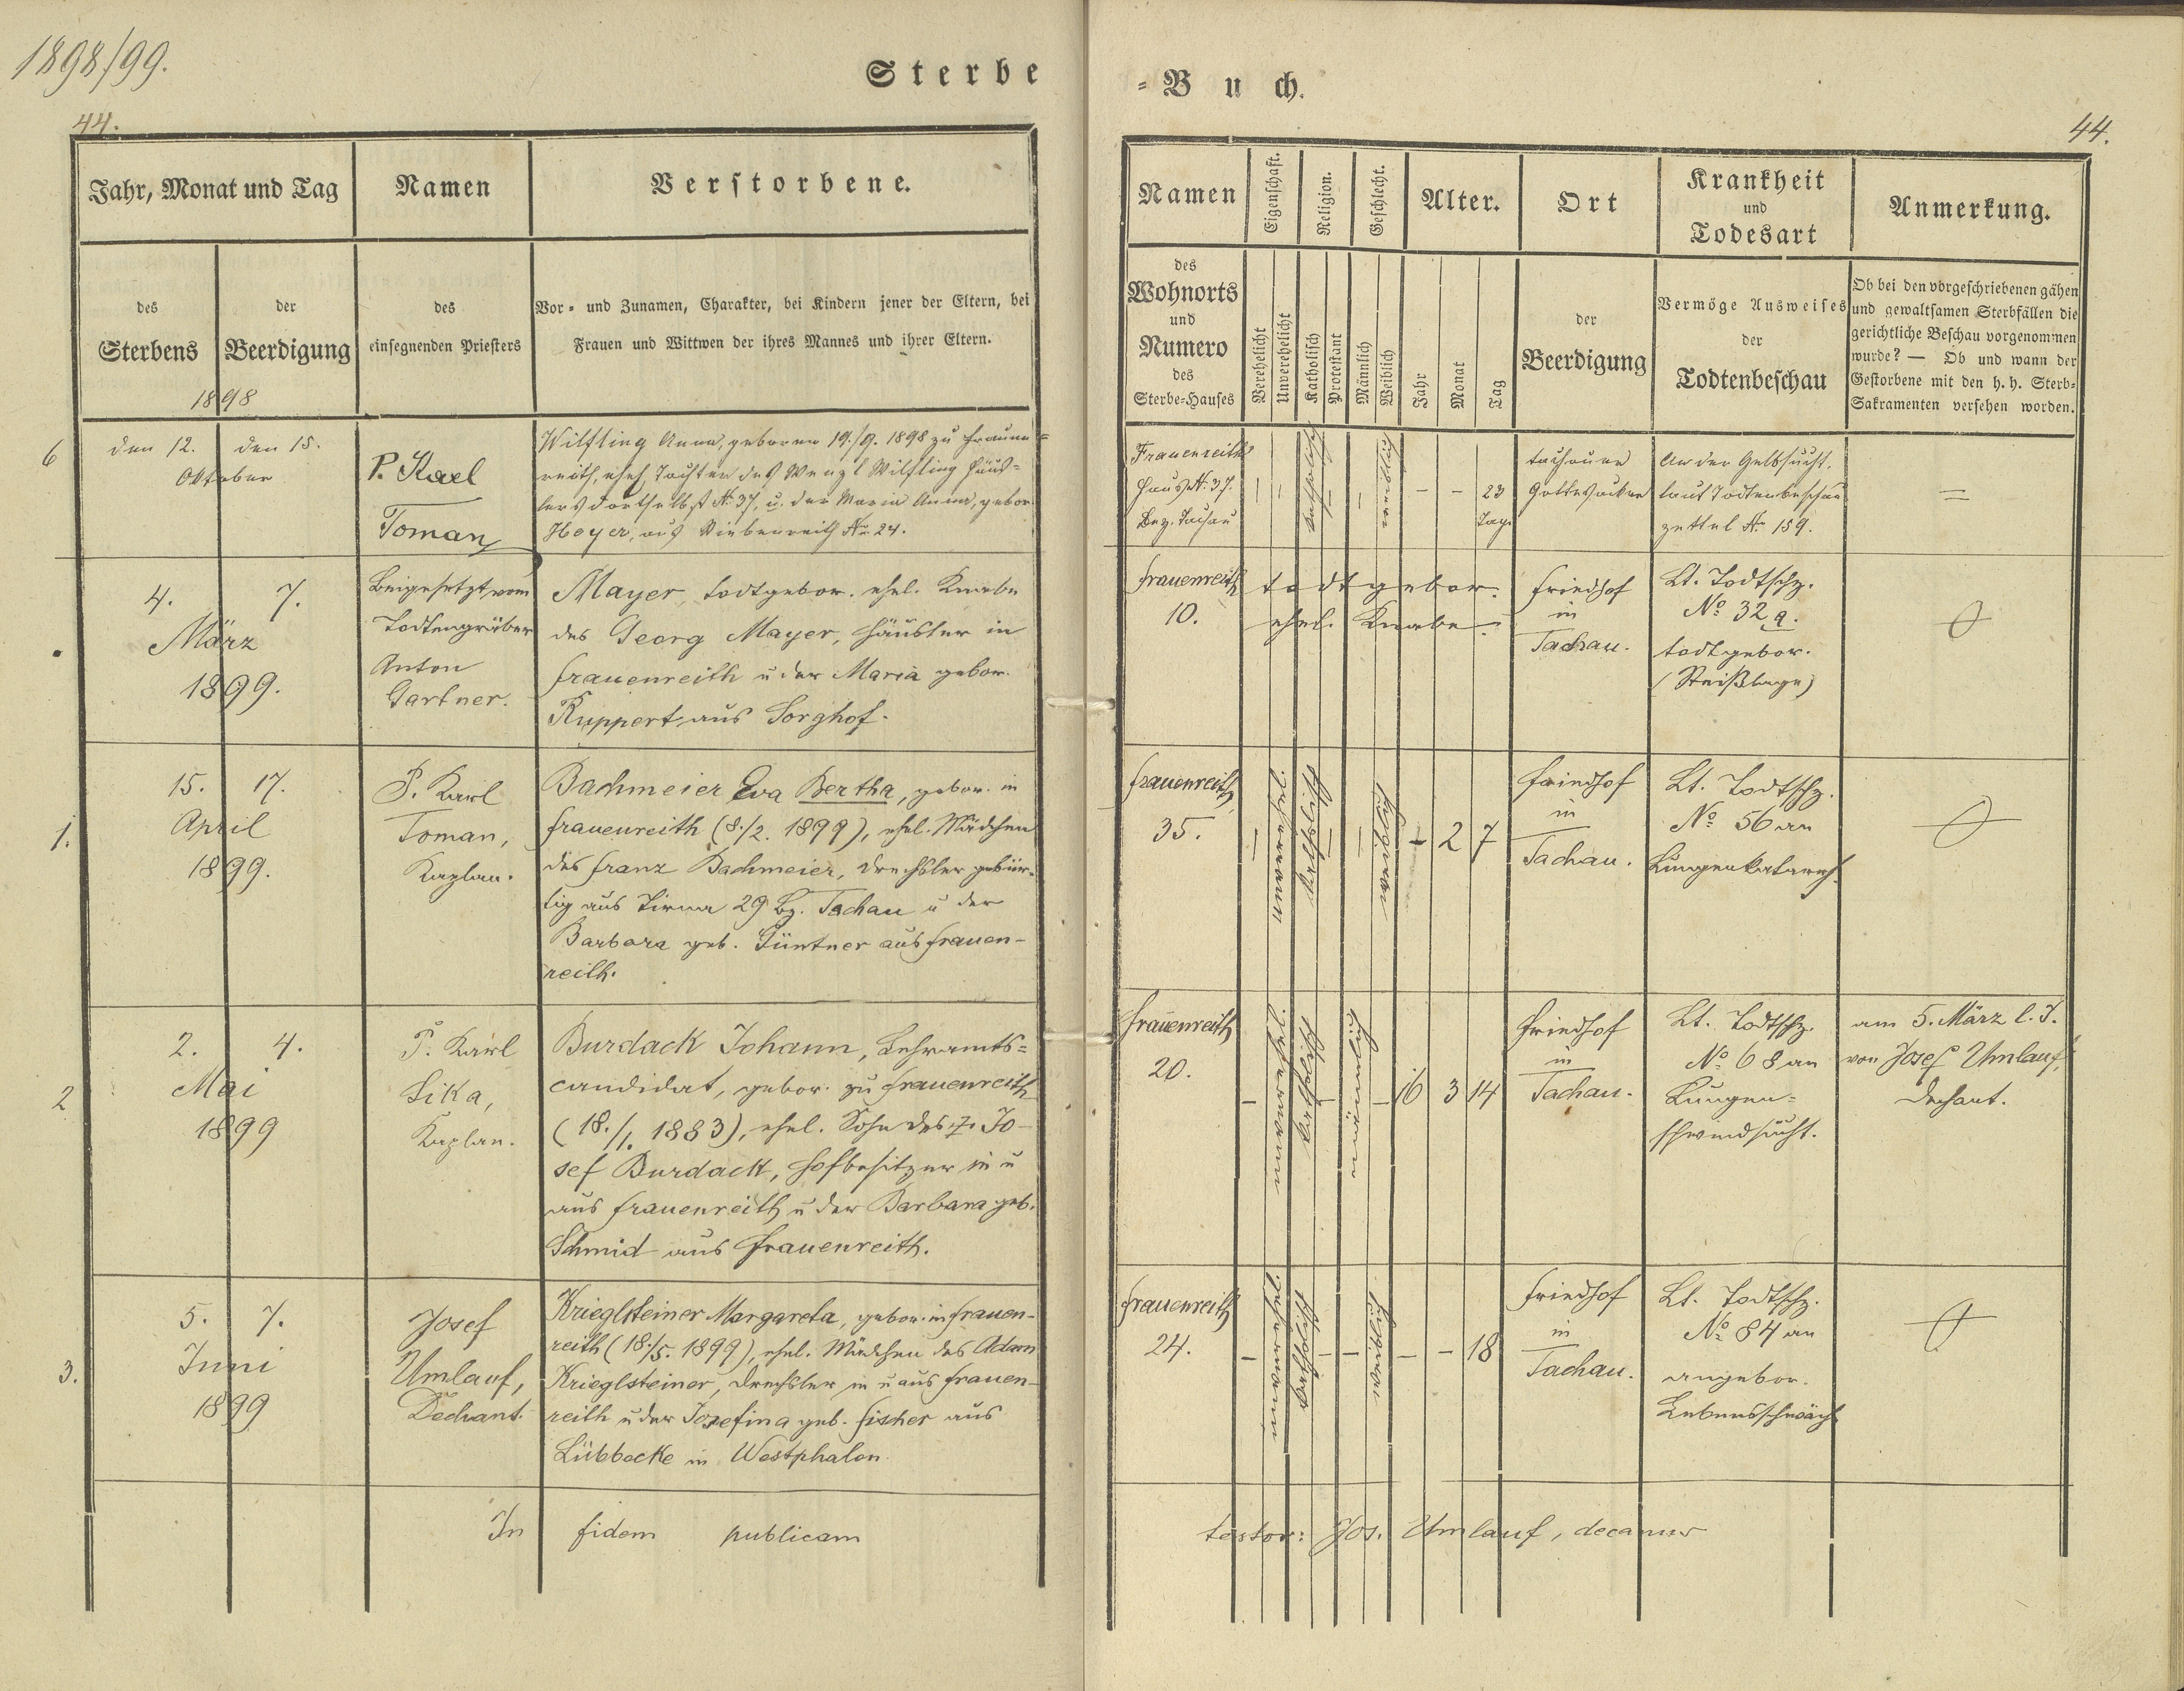 1898/99.
Sterbe
44.
Jahr, Monat und Tag
Namen
Verstorbene.
des
Sterbens
der
Beerdigung
des
einsegnenden Priesters
Vor- und Zunamen, Charakter, bei Kindern jener der Eltern, bei
Frauen und Wittwen der ihres Mannes und ihrer Eltern.
1898
6
den 12. den 15.
Oktober
P. Karl
Toman
Wilfling Anna, geboren 19./9. 1898 zu Frauen=
reith, ehel. Tochter des Wenzl Wilfling Häus=
lers dortselbst No 37, u. der Maria Anna, gebor.
Hoyer, aus No 24.
4. 7.
März
1899.
Beigesetzt vom
Todtengräber
Anton
Gartner.
Mayer, todtgebor. ehel. Knabe
des Georg Mayer, Häusler in
Frauenreith u der Maria gebor.
Ruppert aus Sorghof.
1.
15. 17.
April
1899.
P. Karl
Toman,
Kaplan.
Bachmeier Eva Bertha, gebor. in
Frauenreith (8./2. 1899), ehel. Mädchen
des Franz Bachmeier, Drechsler gebür-
tig aus 29 Bz. Tachau u der
Barbara geb. Güntner aus Frauen-
reith.
2
2. 4.
Mai
1899
P. Karl
Sika,
Kaplan.
Burdack Johann, Lehramts=
candidat, gebor. zu Frauenreith
(18./1. 1883), ehel. Sohn des † Jo-
sef Burdack, Hofbesitzer in u
aus Frauenreith u der Barbara geb.
Schmid aus Frauenreith.
3.
5. 7.
Juni
1899
Josef
Umlauf,
Dechant.
Krieglsteiner Margareta, gebor. in Frauen-
reith (18./5. 1899), ehel. Mädchen des Adam
Krieglsteiner, Drechsler in u aus Frauen-
reith u der Josefina geb. Fischer aus
Lübbecke in Westphalen.
In fidem publicam
= Buch.
44.
Namen
Eigenschaft.
Religion.
Geschlecht.
Alter.
Ort
Krankheit
und
Todesart
Anmerkung.
des
Wohnorts
und
Numero
des
Sterbe-Hauses
Verehelicht
Unverehelicht
Katholisch
Protestant
Männlich
Weiblich
Jahr
Monat
Tag
der
Beerdigung
Vermöge Ausweises
der
Todtenbeschau
Ob bei den vorgeschriebenen gähen
und gewaltsamen Sterbfällen die
gerichtliche Beschau vorgenommen
wurde? — Ob und wann der
Gestorbene mit den h. h. Sterb-
Sakramenten versehen worden.
Frauenreith
Haus No. 37.
Bez. Tachau
katholisch
weiblich
- - 23
Tage
Tachauer
Gottesacker
An der Gelbsucht,
laut Todtenbeschau
zettel No 159.
=
Frauenreith
10.
todtgebor.
ehel. Knabe
Friedhof
in
Tachau.
Lt. Todtschz.
No 32 a.
todtgebor.
(Steißlage)
Frauenreith
35.
katholisch
weiblich
- 2 7
Friedhof
in
Tachau.
Lt. Todtschz.
No 56 an
Lungenkatarrh.
Frauenreith
20.
katholisch
männlich
16 3 14
Friedhof
in
Tachau.
Lt. Todtschz.
No 68 an
Lungen=
schwindsucht.
am 5. März l. J.
von Josef Umlauf,
Dechant.
Frauenreith
24.
katholisch
weiblich
- - 18
Friedhof
in
Tachau.
Lt. Todtschz.
No 84 an
angebor.
Lebensschwäche
testor: Jos. Umlauf, decanus